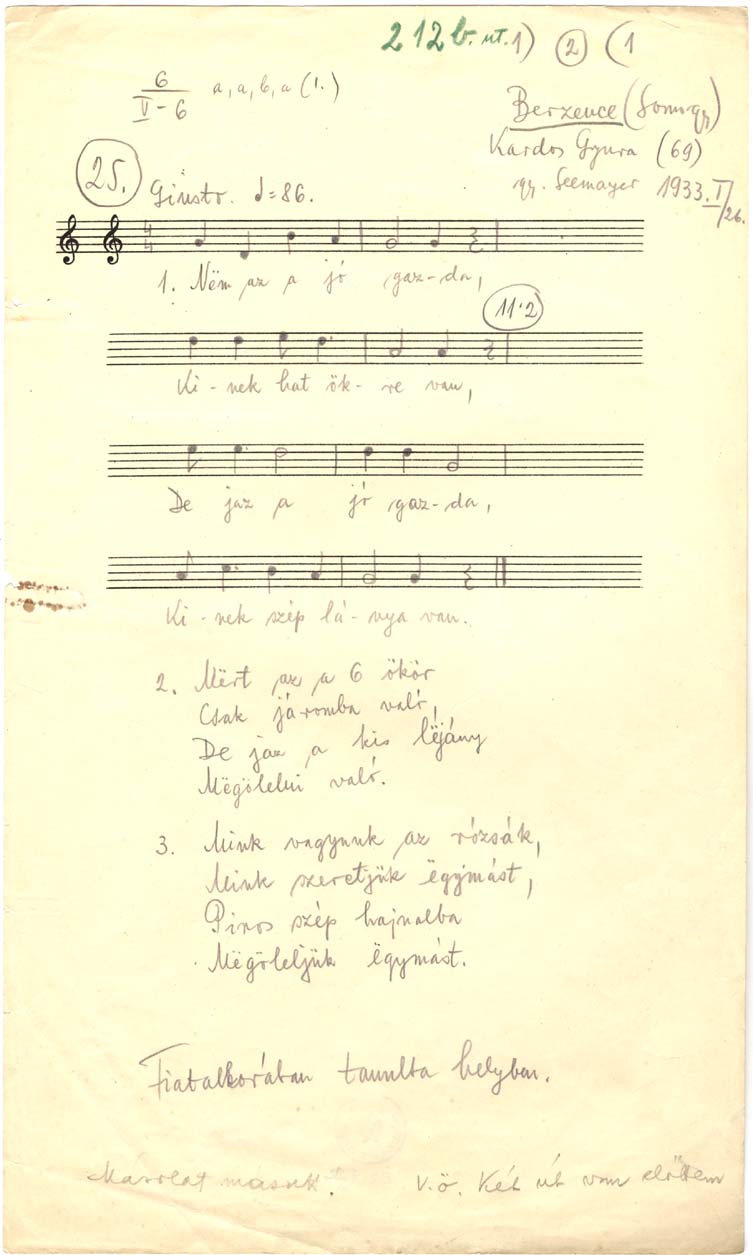 212 b. ut. 1) 2 (1
6
V-6 a, a, b, a (1.)
Berzence (Somogy)
Kardos Gyura (69)
gy. Seemayer 1933. I/26.
25.
Giusto. = 86.
1. Nëm az a jó gaz-da,
11·2
Ki-nek hat ök-re van,
De jaz a jó gaz-da,
Ki-nek szép lá-nya van.
2. Mërt az a 6 ökör
Csak járomba való,
De jaz a kis lëjány
Mëgölelni való.
3. Mink vagyunk az rózsák,
Mink szeretjük ëgymást,
Piros szép hajnalba
Mëgöleljük ëgymást.
Fiatalkorában tanulta helyben.
V.ö. Két út van előttem